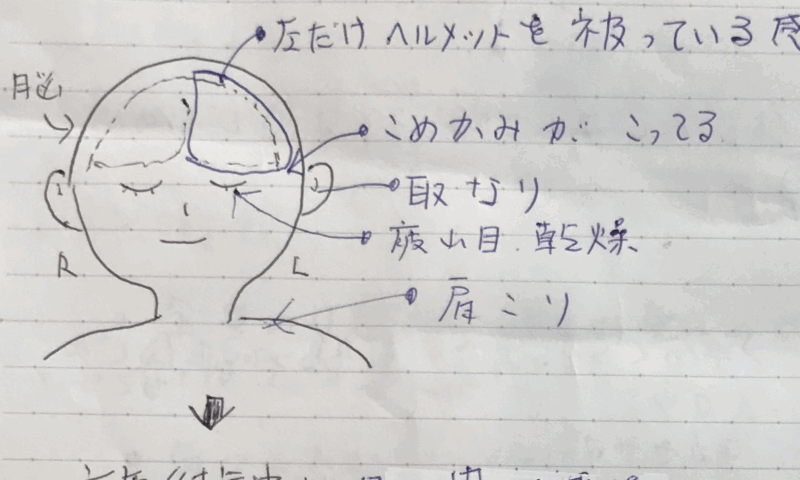 左だけ ヘルメットを 被っている感
脳
こめかみが こってる
取なり
疲れ目.乾燥
R
L
肩こり